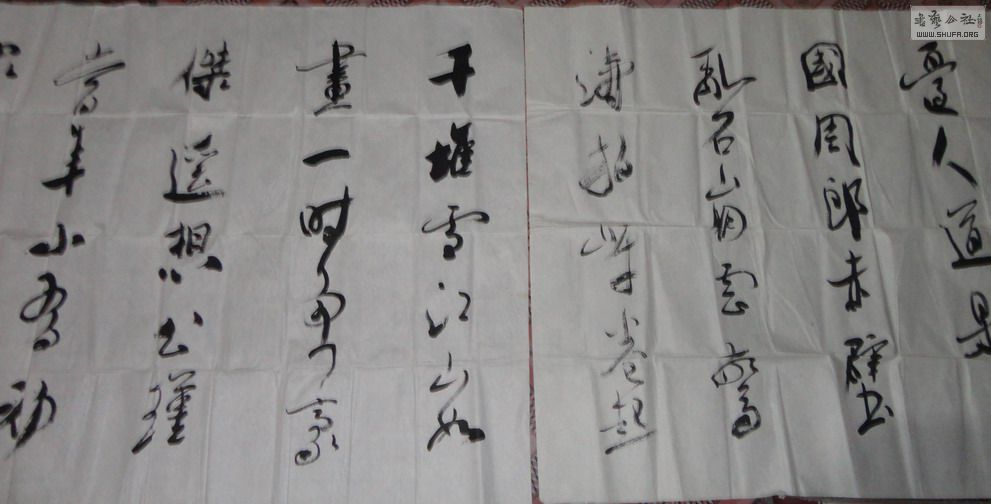 邊人道是
國周郎赤壁
亂石崩雲驚
濤拍岸卷起
千堆雪江山如
畫一時多少豪
傑遙想公瑾
當年小喬初
書藝公社
WWW.SHUFA.ORG